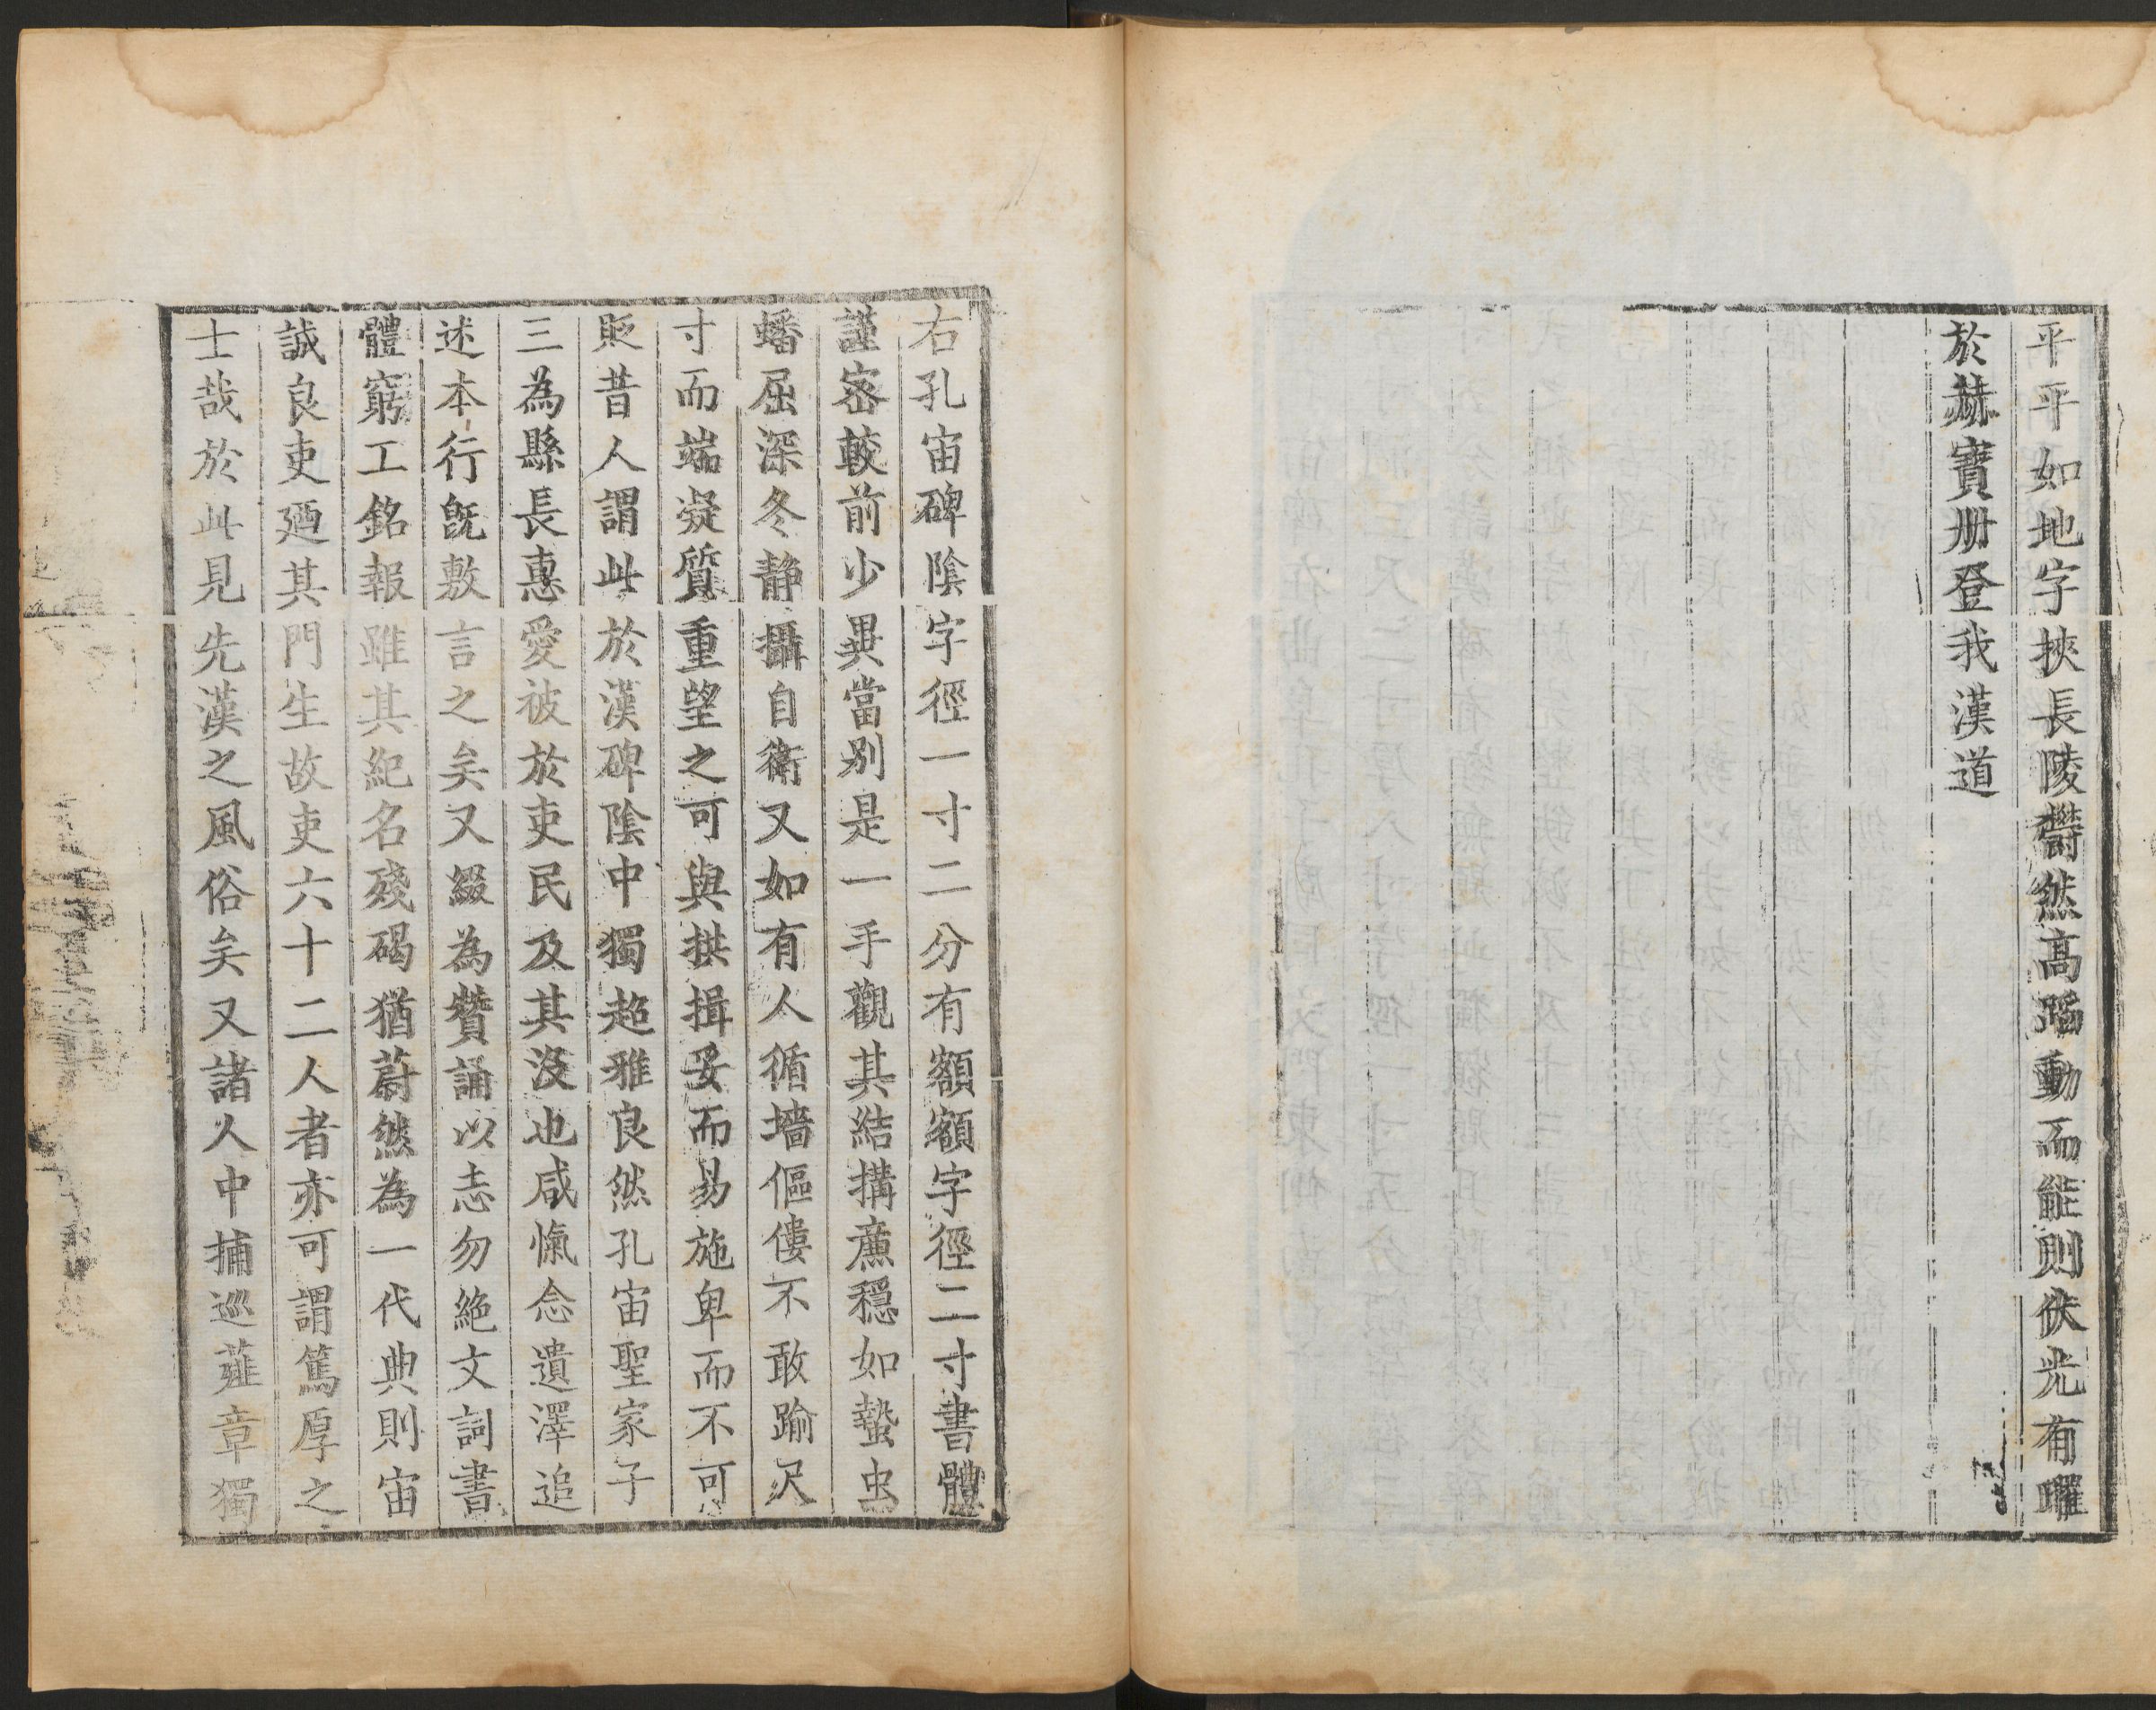 平平如地字挾長陵欝然高蹈動而能則伏光有曜
於赫寶册登我漢道
右孔宙碑陰字徑一寸二分有額額字徑二寸書體
謹宻較前少異當别是一手觀其結搆廉穩如蟄虫
蟠屈深冬静攝自衛又如有人循墻傴僂不敢踰尺
寸而端凝質重望之可與拱揖妥而易施卑而不可
貶昔人謂此於漢碑陰中獨超雅良然孔宙聖家子
三為縣長惠愛被於吏民及其沒也咸愾念遺澤追
述本行旣敷言之矣又綴為贊誦以志勿絶文詞書
體窮工銘報雖其紀名殘碣猶蔚然為一代典則宙
誠良吏廼其門生故吏六十二人者亦可謂篤厚之
士哉於此見先漢之風俗矣又諸人中捕巡薤章獨